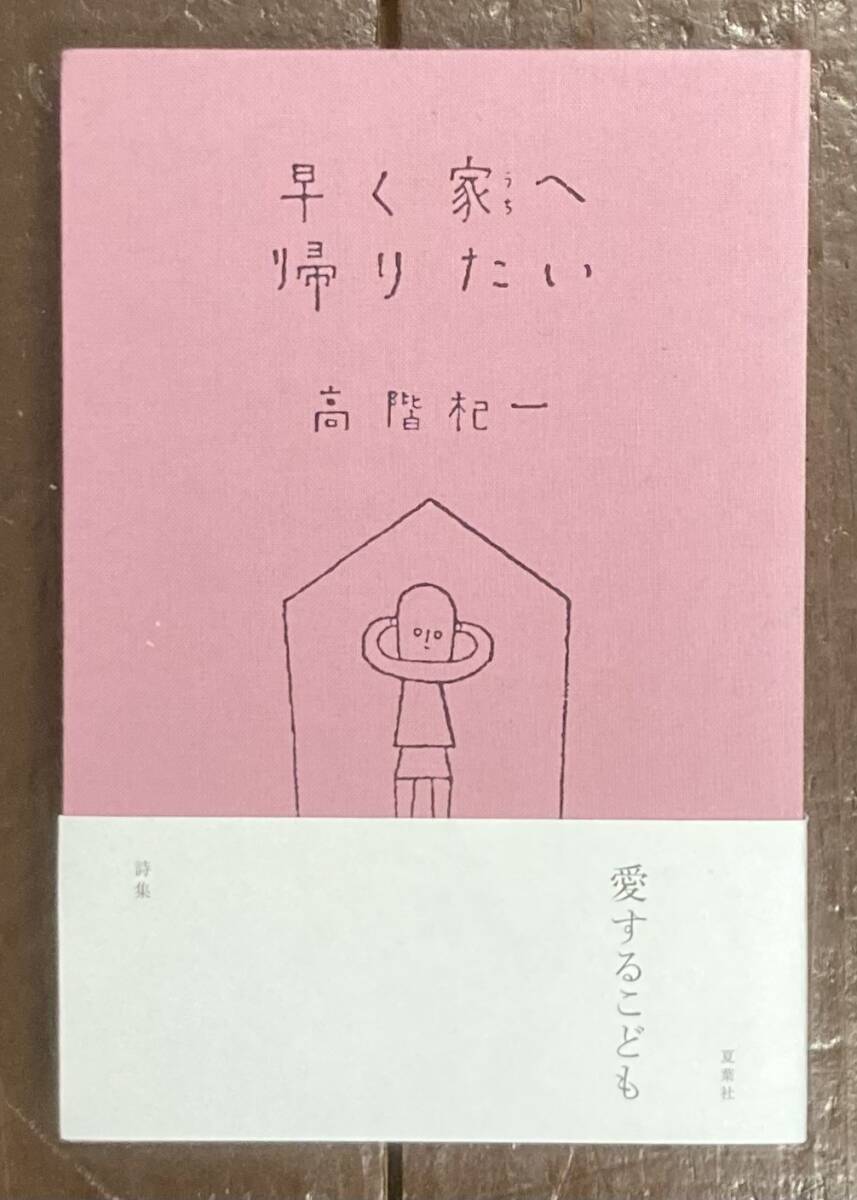 早く家へ
うち
帰りたい
高階杞一
愛するこども
詩集
夏葉社